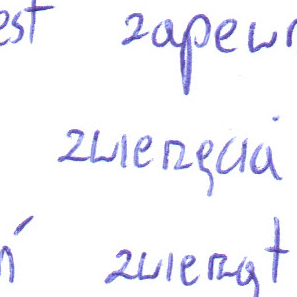 est zapew
zwierzęcia
ń zwierząt